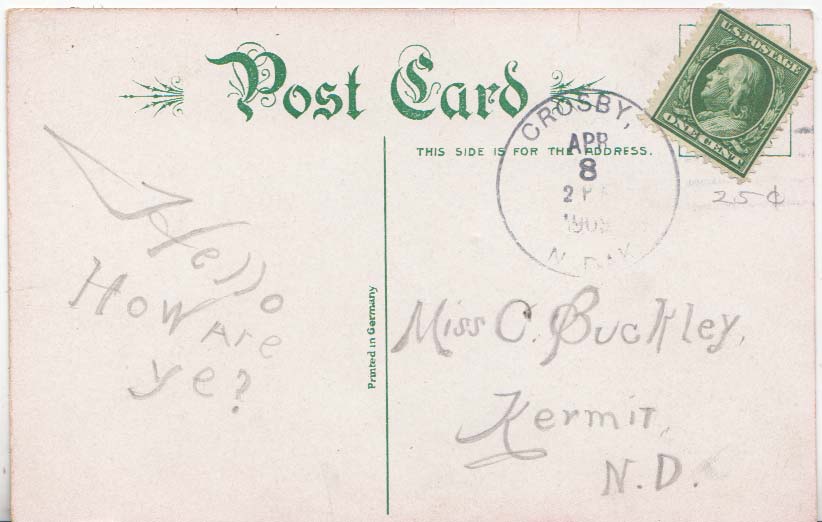 Post Card
THIS SIDE IS FOR THE ADDRESS.
U.S. POSTAGE
ONE CENT
CROSBY,
APR
8
2 P
N. DAK
25¢
Hello
How Are
ye?
Printed in Germany
Miss C. Buckley,
Kermit,
N.D.